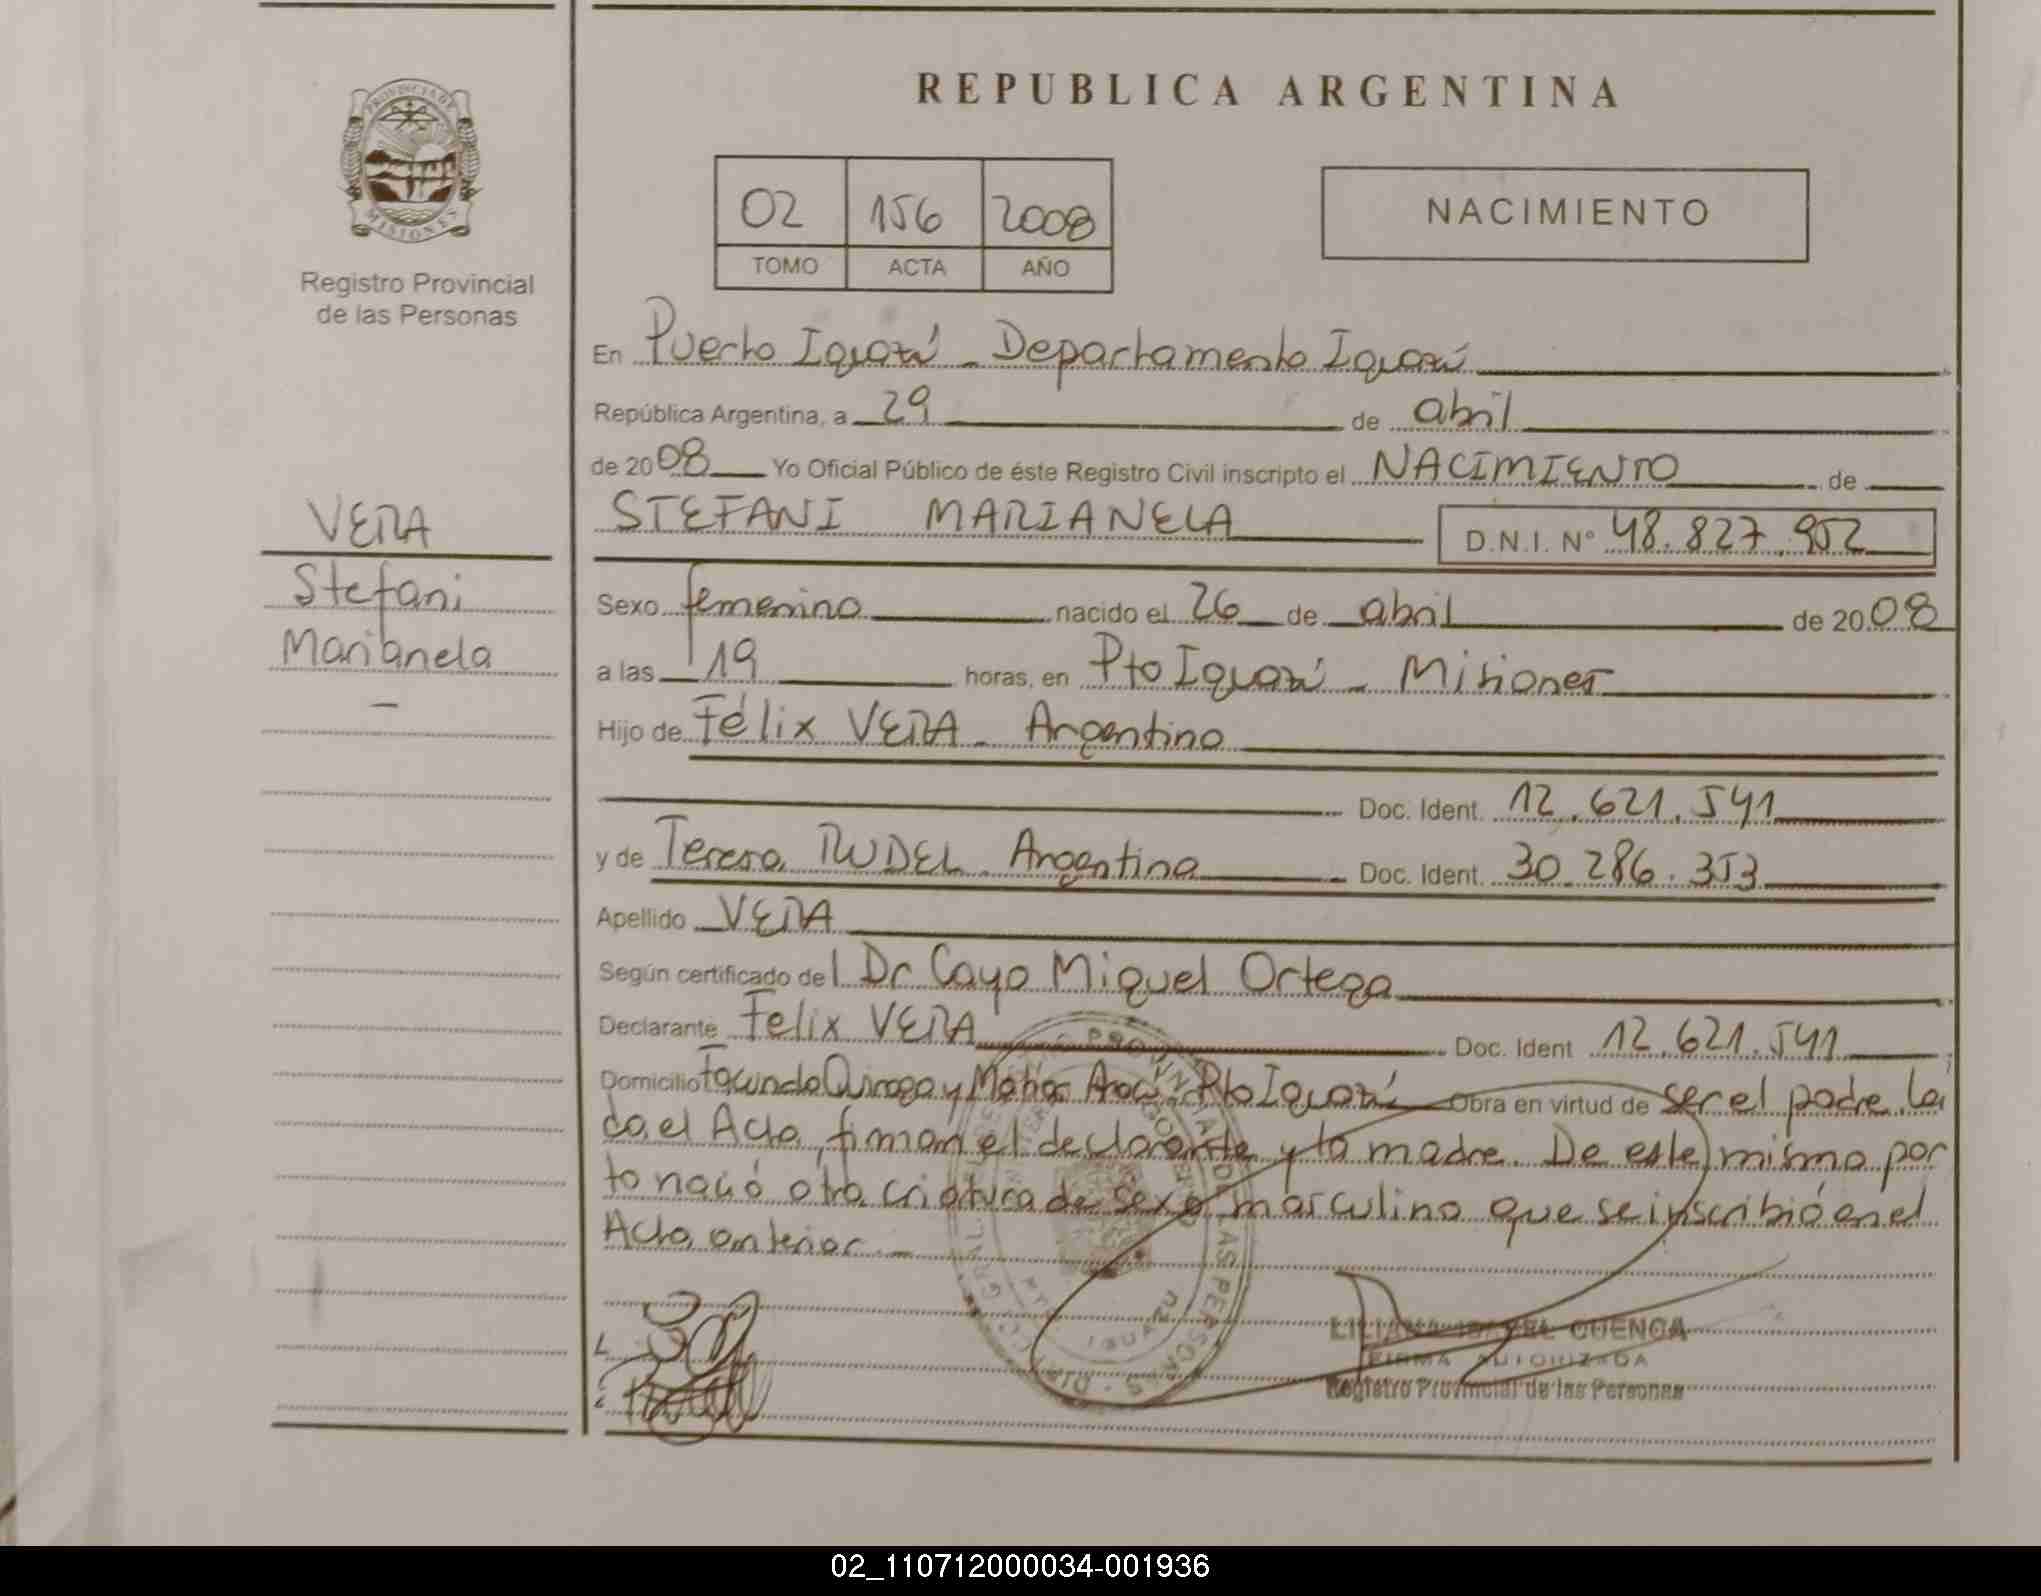 REPUBLICA ARGENTINA
PROVINCIA DE
MISIONES
Registro Provincial
de las Personas
02 156 2008
TOMO ACTA AÑO
NACIMIENTO
En Puerto Iguazú - Departamento Iguazú
República Argentina, a 29 de abril
de 2008 Yo Oficial Público de éste Registro Civil inscripto el NACIMIENTO de
VERA
STEFANI MARIANELA D.N.I. N° 48.827.952
Stefani
Marianela
Sexo femenino nacido el 26 de abril de 2008
a las 19 horas, en Pto Iguazú - Misiones
Hijo de Félix VERA - Argentino
Doc. Ident. 12.621.541
y de Teresa RUDEL - Argentina Doc. Ident. 30.286.353
Apellido VERA
Según certificado del Dr Cayo Miguel Ortega
Declarante Felix VERA Doc. Ident 12.621.541
Domicilio Facundo Quiroga y Matias Pto Iguazú Obra en virtud de ser el padre. Leí
da el Acta, firman el declarante y la madre. De este mismo par
to nació otra criatura de sexo masculino que se inscribió en el
Acta anterior.-
LILIANA ISABEL CUENCA
FIRMA AUTORIZADA
Registro Provincial de las Personas
02_110712000034-001936